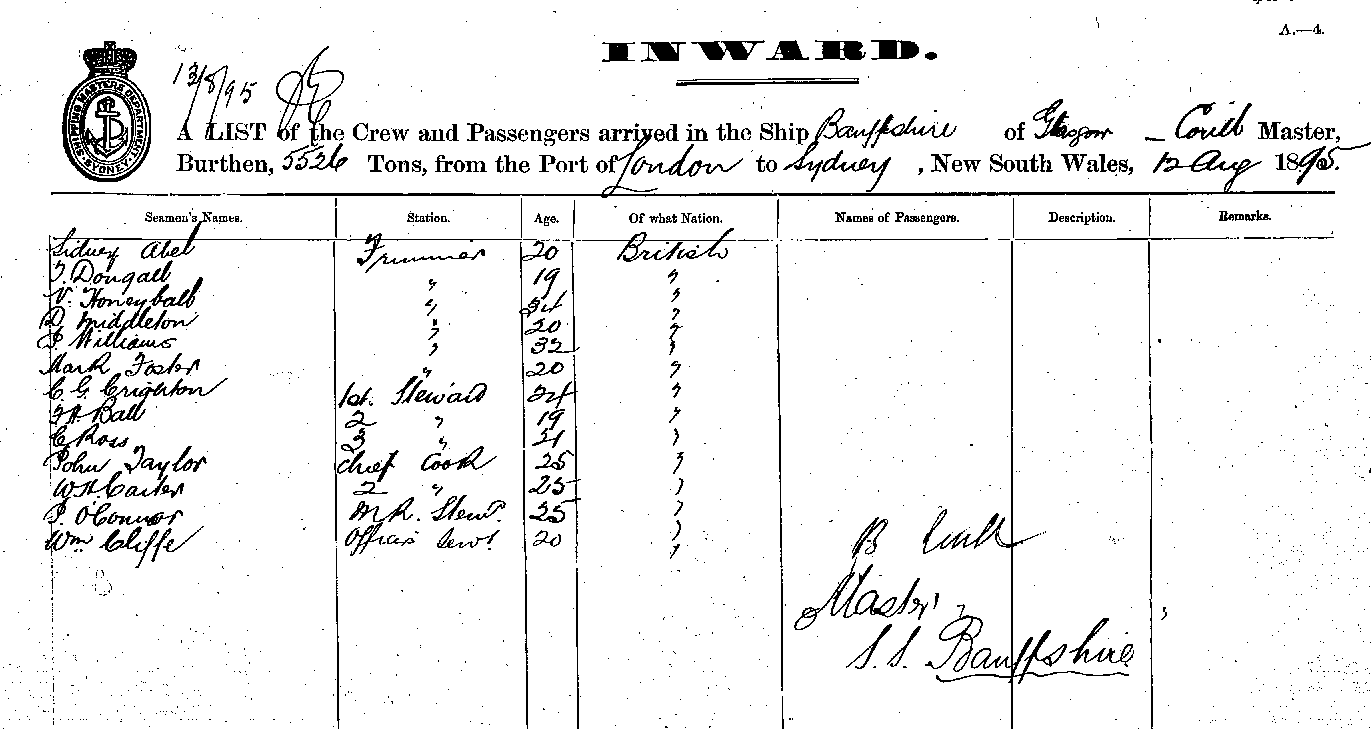 A.—4.
INWARD.
13/8/95
SHIPPING MASTER'S DEPARTMENT SYDNEY
A LIST of the Crew and Passengers arrived in the Ship Banffshire of Glasgow — Master,
Burthen, 5526 Tons, from the Port of London to Sydney, New South Wales, 12 Aug 1895.
Seamen's Names. Station. Age. Of what Nation. Names of Passengers. Description. Remarks.
Sidney Abel Trimmer 20 British
T. Dougall " 19 "
V. Honeyball " 34 "
D. Middleton " 20 "
P. Williams " 32 "
Mark Foster " 20 "
C. G. Crighton 1st. Steward 24 "
Ball 2 " 19 "
C Ross 3 " 21 "
John Taylor Chief Cook 25 "
W H Carter 2 " 25 "
O'Connor M.R. Stewd. 25 "
Wm Cliffe Officers Sevt. 20 "
B
Master,
S.S. Banffshire